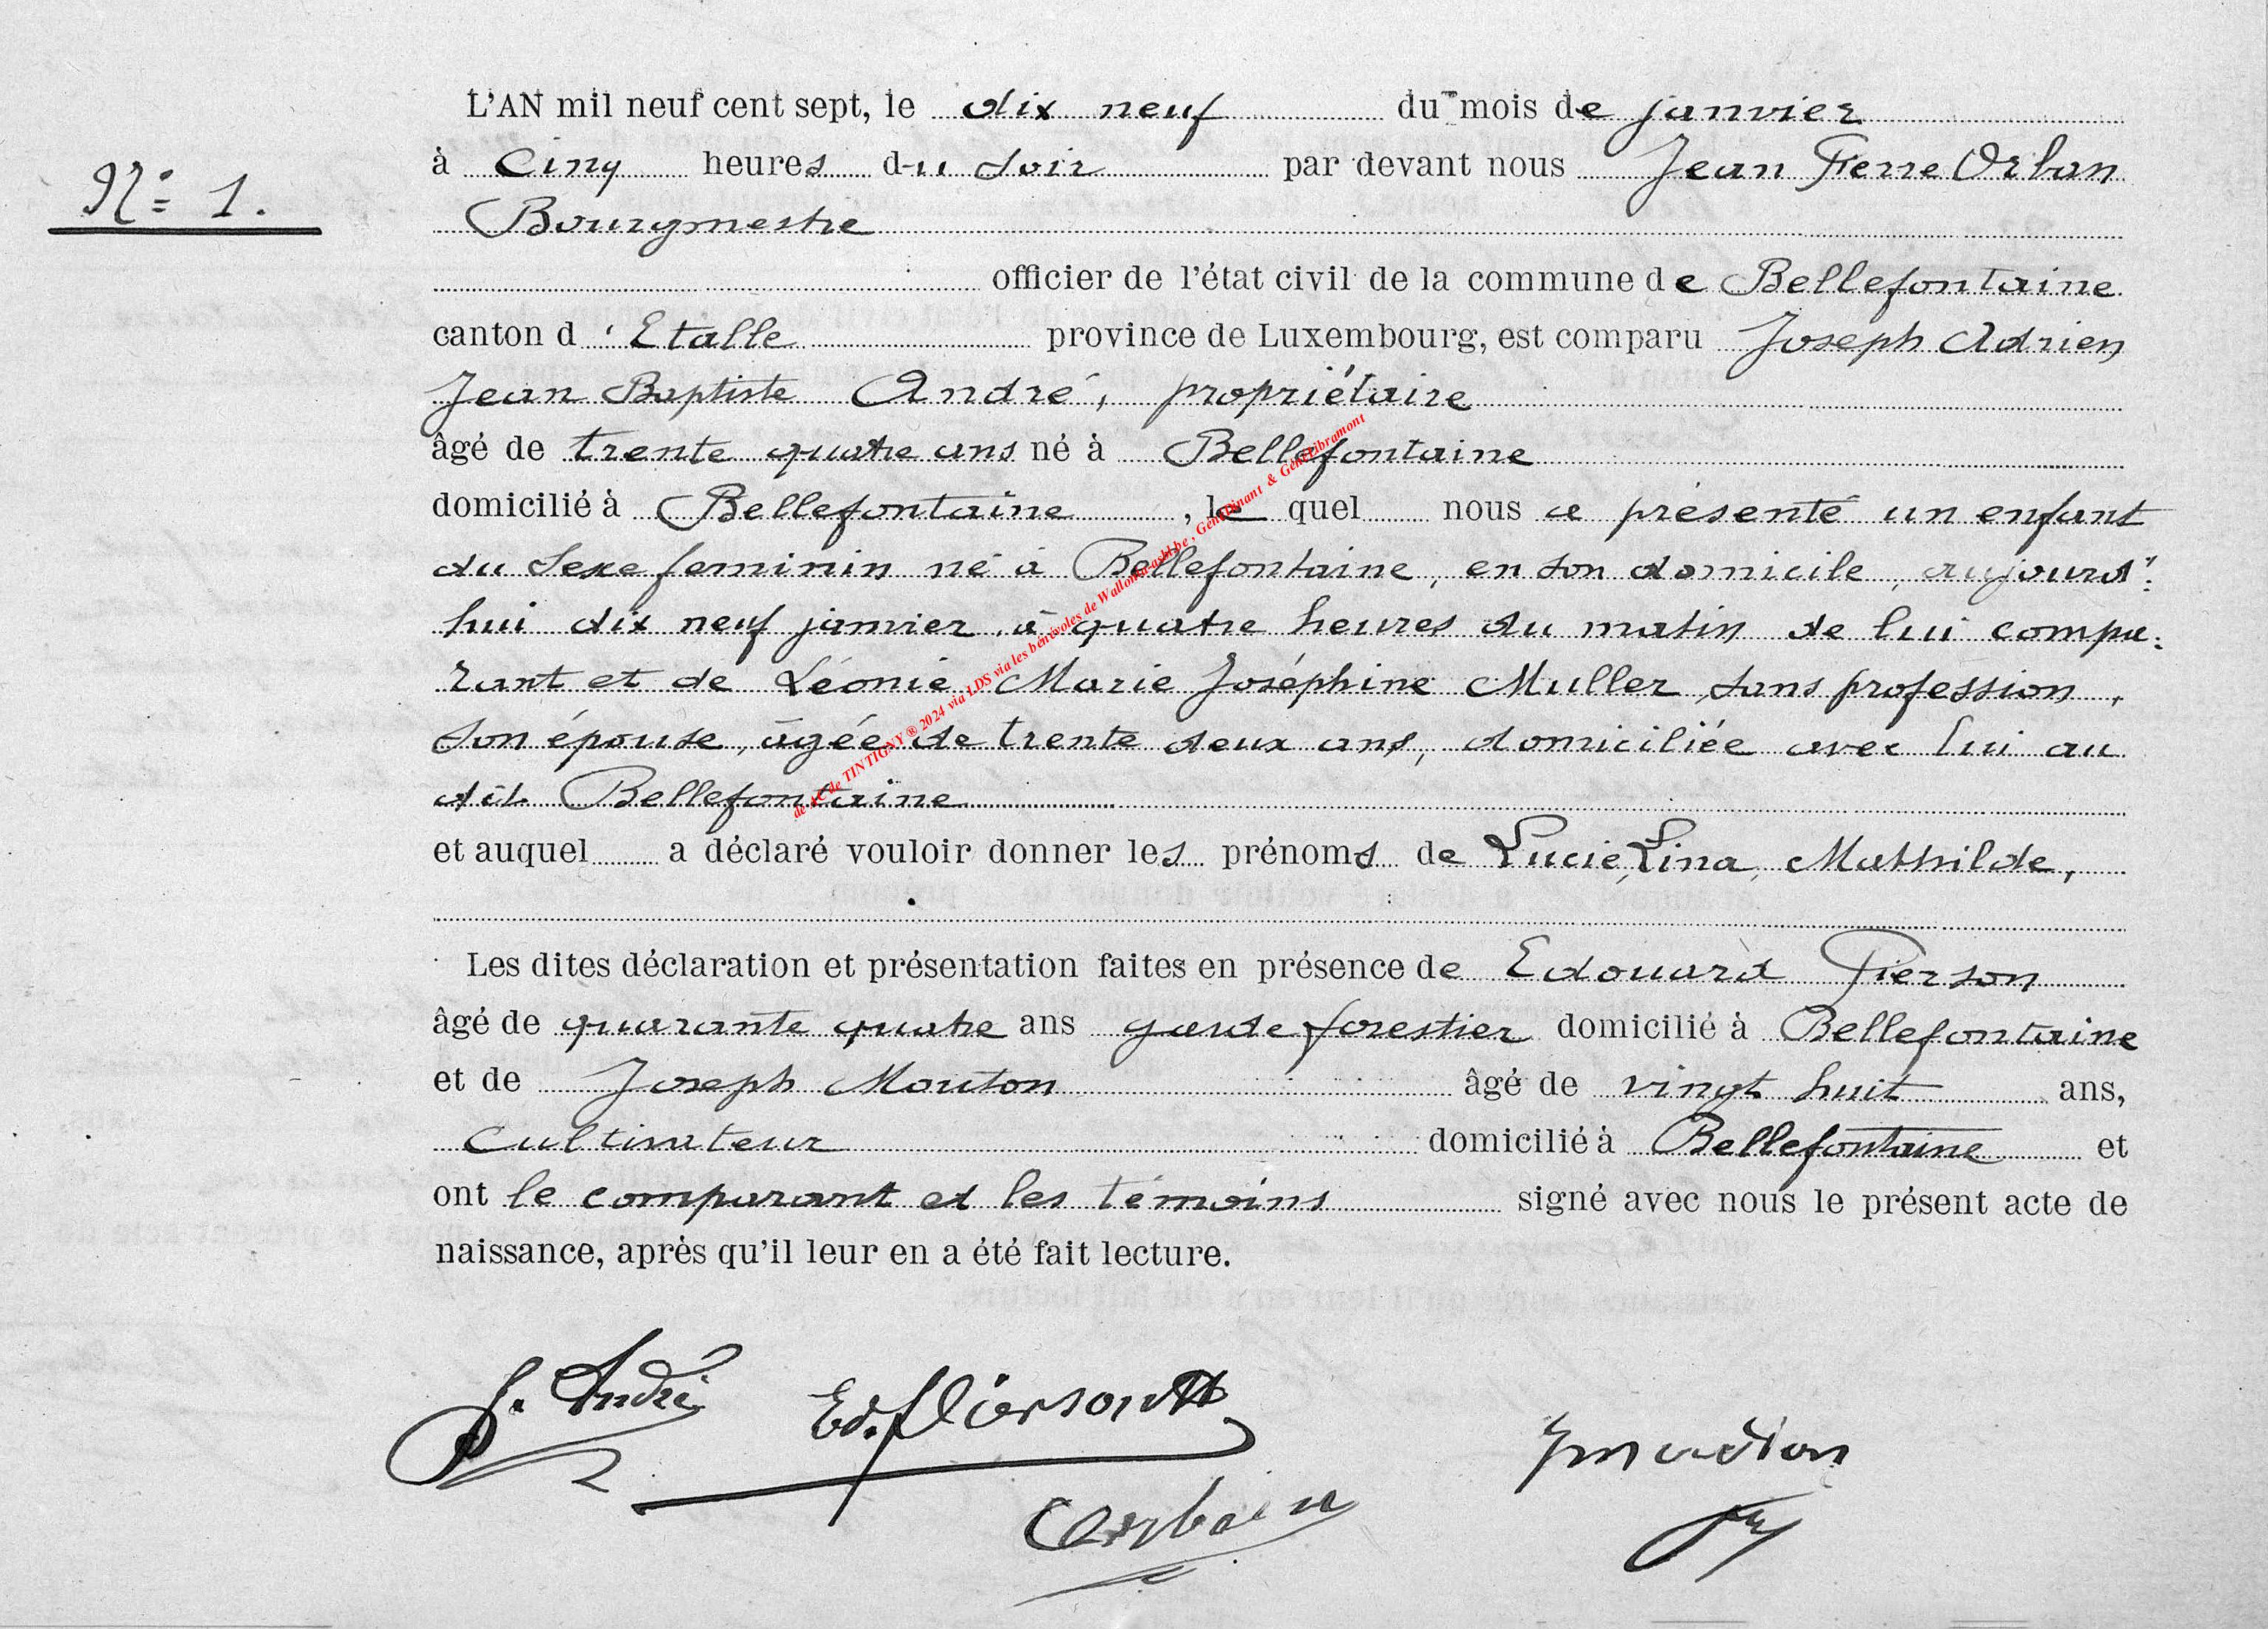 L'AN mil neuf cent sept, le dix neuf du mois de janvier
à Cinq heures du soir par devant nous Jean Pierre Orban
Nº 1.
Bourgmestre
officier de l'état civil de la commune de Bellefontaine
canton d'Etalle province de Luxembourg, est comparu Joseph Adrien
Jean Baptiste André, propriétaire
âgé de trente quatre ans né à Bellefontaine
domicilié à Bellefontaine, le quel nous a présenté un enfant
du sexe feminin né à Bellefontaine, en son domicile, aujourd'
hui dix neuf janvier à quatre heures du matin de lui compa-
rant et de Léonie Marie Joséphine Muller, sans profession,
son épouse, âgée de trente deux ans, domiciliée avec lui au
dit Bellefontaine
et auquel a déclaré vouloir donner les prénoms de Lucie, Lina, Mathilde,
Les dites déclaration et présentation faites en présence de Edouard Pierson
âgé de quarante quatre ans garde forestier domicilié à Bellefontaine
et de Joseph Mouton âgé de vingt huit ans,
Cultivateur domicilié à Bellefontaine et
ont le comparant et les témoins signé avec nous le présent acte de
naissance, après qu'il leur en a été fait lecture.
J. André Ed. Pierson
de AC de TINTIGNY ® 2024 via LDS via les bénévoles de Wallonia-asbl.be, GéniDinant & GéniLibramont